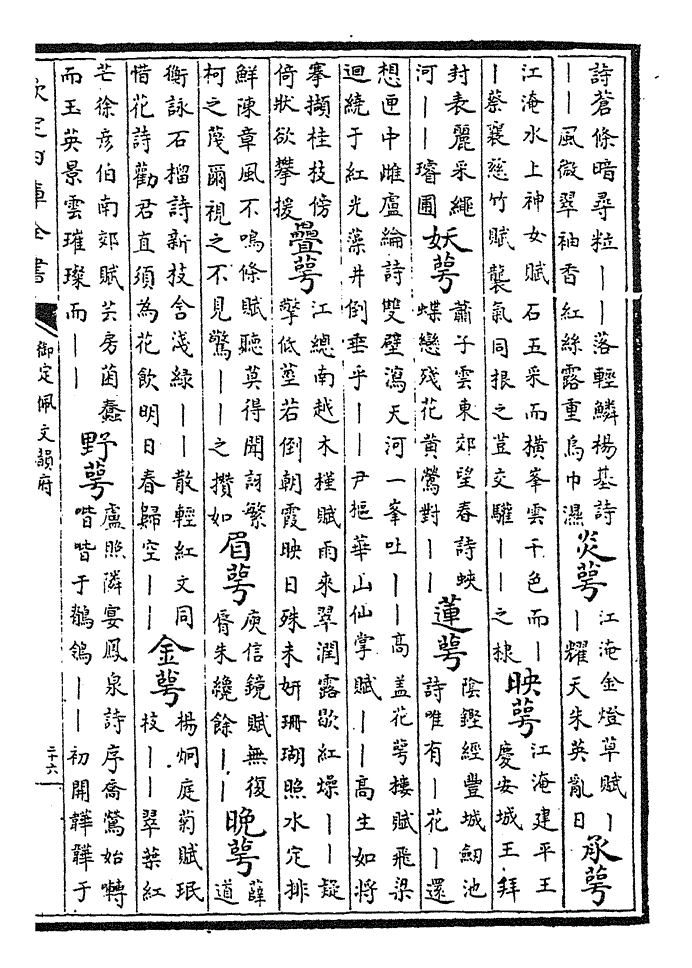 詩蒼條暗尋粒——落輕鱗楊基詩
——風微翠袖香紅絲露重烏巾濕
炎萼
江淹金燈草賦—
—耀天朱英亂日
承萼
江淹水上神女賦石五采而横峯雲千色而—
—蔡襄慈竹賦襲氣同根之荳交驩——之棣
映萼
江淹建平王
慶安城王拜
封表麗采繩
河——璿圃
妖萼
蕭子雲東郊望春詩蛺
蝶戀殘花黄鶯對——
蓮萼
陰鏗經豐城劒池
詩唯有—花—還
想匣中雌盧綸詩雙壁瀉天河一峯吐——高蓋花萼樓賦飛梁
迴繞于紅光藻井倒垂乎——尹樞華山仙掌賦——高生如將
搴擷桂枝傍
倚狀欲攀援
疊萼
江總南越木槿賦雨來翠潤露歇紅燥——疑
擎低莖若倒朝霞映日殊未妍珊瑚照水定排
鮮陳章風不鳴條賦聽莫得聞訝繁
柯之蔑爾視之不見驚——之攢如
眉萼
庾信鏡賦無復
脣朱纔餘——
晚萼
薛
道
衡詠石榴詩新枝含淺緑——散輕紅文同
惜花詩勸君直須為花飲明日春歸空——
金萼
楊炯庭菊賦珉
枝——翠葉紅
芒徐彦伯南郊賦芸房菌蠢
而玉英景雲璀璨而——
野萼
盧照隣宴鳳泉詩序喬鶯始囀
喈喈于鶺鴒——初開韡韡于
欽定四庫全書
御定佩文韻府
二十六